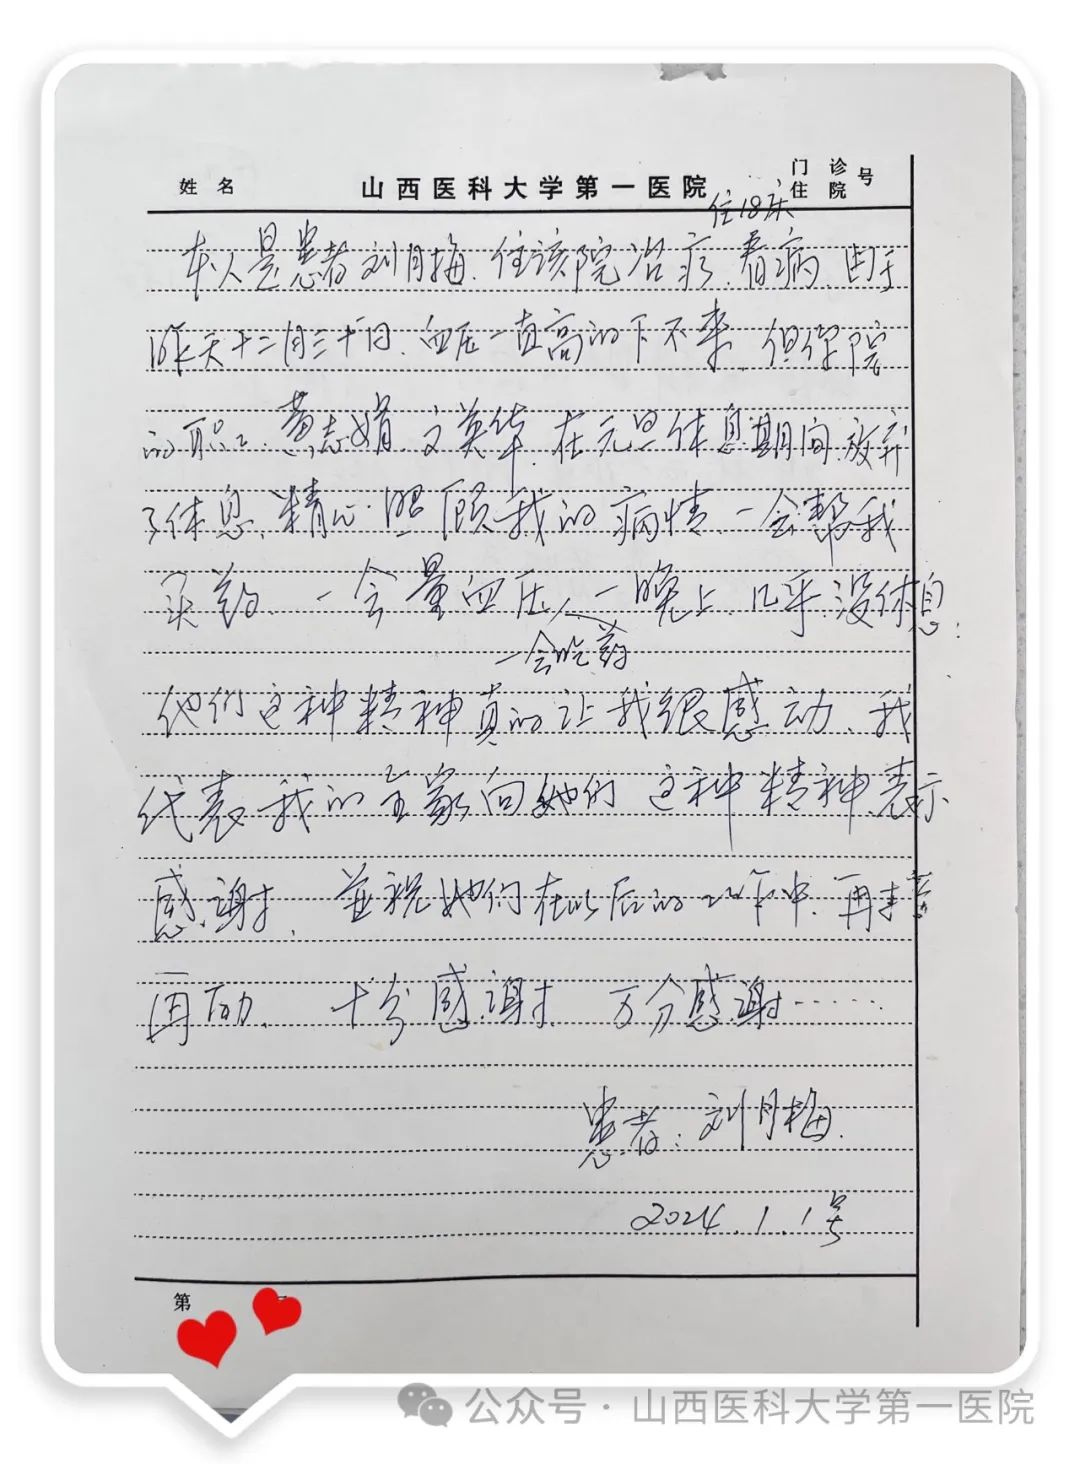 姓名 山西医科大学第一医院 门诊住院号
住18床
本人是患者刘月梅、住该院治疗、看病、由于
昨天十二月三十一日、血压一直高的下不来、但你院
的职工、黄志娟、文英华、在元旦休息期间、放弃
了休息、精心照顾我的病情、一会帮我
买药、一会量血压、一晚上、几乎没休息:
一会吃药
他们这种精神真的让我很感动、我
代表我的全家向她们这种精神表示
感谢、并祝她们在以后的工作中、再接
再励、十分感谢、万分感谢……
患者:刘月梅.
2024.1.1号
第
公众号·山西医科大学第一医院